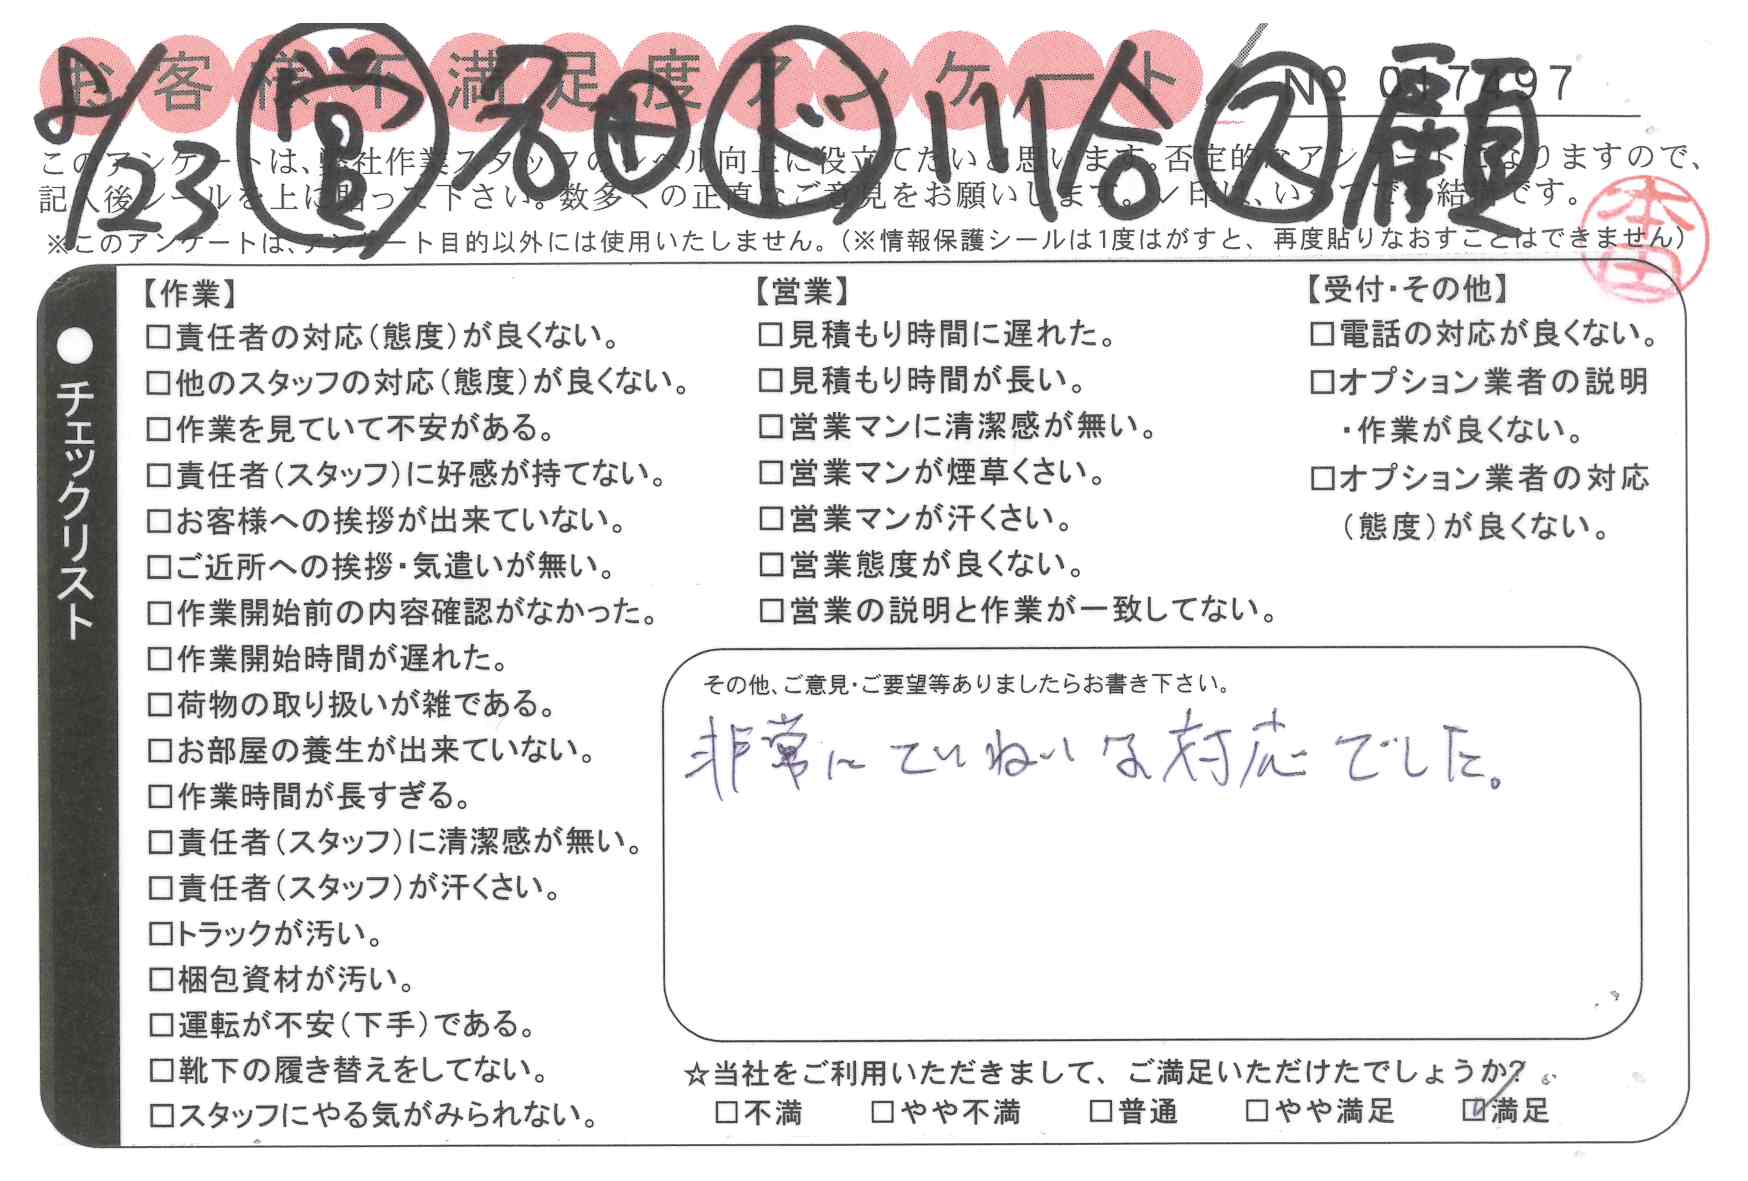 お客様不満足度アンケート
No 017497
8/23 堂 名田 ド 川合 ス 顧
このアンケートは、弊社作業スタッフのレベル向上に役立てたいと思います。否定的なアンケートになりますので、
記入後シールを上に貼って下さい。数多くの正直なご意見をお願いします。✓印は、いくつでも結構です。
※このアンケートは、アンケート目的以外には使用いたしません。（※情報保護シールは1度はがすと、再度貼りなおすことはできません）
本田
●チェックリスト
【作業】
□責任者の対応（態度）が良くない。
□他のスタッフの対応（態度）が良くない。
□作業を見ていて不安がある。
□責任者（スタッフ）に好感が持てない。
□お客様への挨拶が出来ていない。
□ご近所への挨拶・気遣いが無い。
□作業開始前の内容確認がなかった。
□作業開始時間が遅れた。
□荷物の取り扱いが雑である。
□お部屋の養生が出来ていない。
□作業時間が長すぎる。
□責任者（スタッフ）に清潔感が無い。
□責任者（スタッフ）が汗くさい。
□トラックが汚い。
□梱包資材が汚い。
□運転が不安（下手）である。
□靴下の履き替えをしてない。
□スタッフにやる気がみられない。
【営業】
□見積もり時間に遅れた。
□見積もり時間が長い。
□営業マンに清潔感が無い。
□営業マンが煙草くさい。
□営業マンが汗くさい。
□営業態度が良くない。
□営業の説明と作業が一致してない。
【受付・その他】
□電話の対応が良くない。
□オプション業者の説明
・作業が良くない。
□オプション業者の対応
（態度）が良くない。
その他、ご意見・ご要望等ありましたらお書き下さい。
非常にていねいな対応でした。
☆当社をご利用いただきまして、ご満足いただけたでしょうか？
□不満 □やや不満 □普通 □やや満足 ☑満足